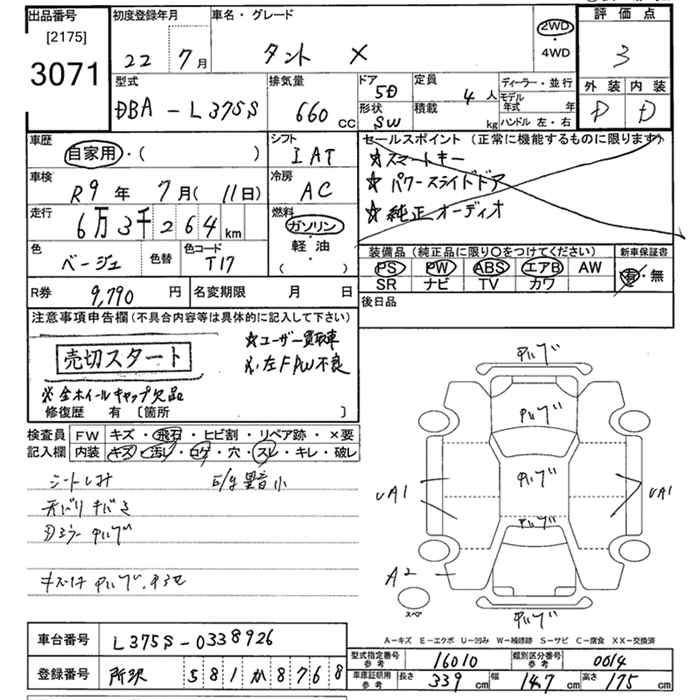 出品番号
[2175]
3071
初度登録年月
22 7月
車名・グレード
タント X
2WD
・
4WD
評価点
3
外装 内装
D D
型式
DBA-L375S
排気量
660 CC
ドア 5D
形状 SW
定員 4人
積載 kg
ディーラー・並行
モデル年式 年
ハンドル 左・右
車歴
自家用・( )
シフト
IAT
車検
R9年 7月(11日)
冷房
AC
走行
6万3千264 km
燃料
ガソリン
軽油
( ・ )
色
ベージュ
色替
色コード
T17
セールスポイント(正常に機能するものに限ります)
☆スマートキー
☆パワースライドドア
☆純正オーディオ
装備品(純正品に限り○をつけてください)
PS PW ABS エアB AW
SR ナビ TV カワ
新車保証書
有・無
R券 9,790円
名変期限 月 日
後日品
注意事項申告欄(不具合内容等は具体的に記入して下さい)
売切スタート
☆ユーザー買取車
※左F PW不良
※全ホイールキャップ欠品
修復歴 有 [箇所 ]
検査員
記入欄
FW キズ・飛石・ヒビ割・リペア跡・×要
内装 キズ・汚レ・コゲ・穴・スレ・キレ・破レ
シートしみ
E/g異音小
UA1
UA1
A2
スペア
A-キズ E-エクボ U-凹み W-補修跡 S-サビ C-腐食 XX-交換済
車台番号 L375S-0338926
登録番号 所沢 581か8768
型式指定番号 参考 16010
類別区分番号 参考 0014
車庫証明用 参考 長さ 339cm 幅 147cm 高さ 175cm